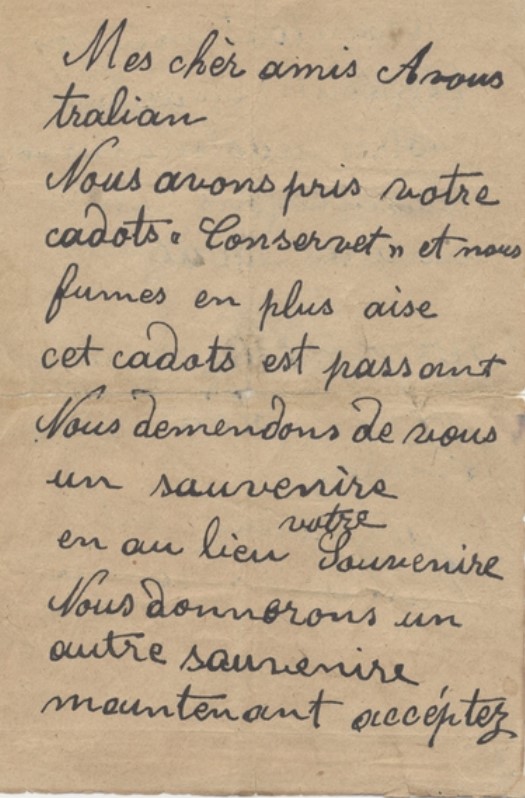 Mes chèr amis Avous
tralian
Nous avons pris votre
cadots « Conservet » et nous
fumes en plus aise
cet cadots est passant
Nous demendons de vous
un sauvenire
en au lieu votre Souvenire
Nous donnerons un
autre sauvenire
maintenant accéptez